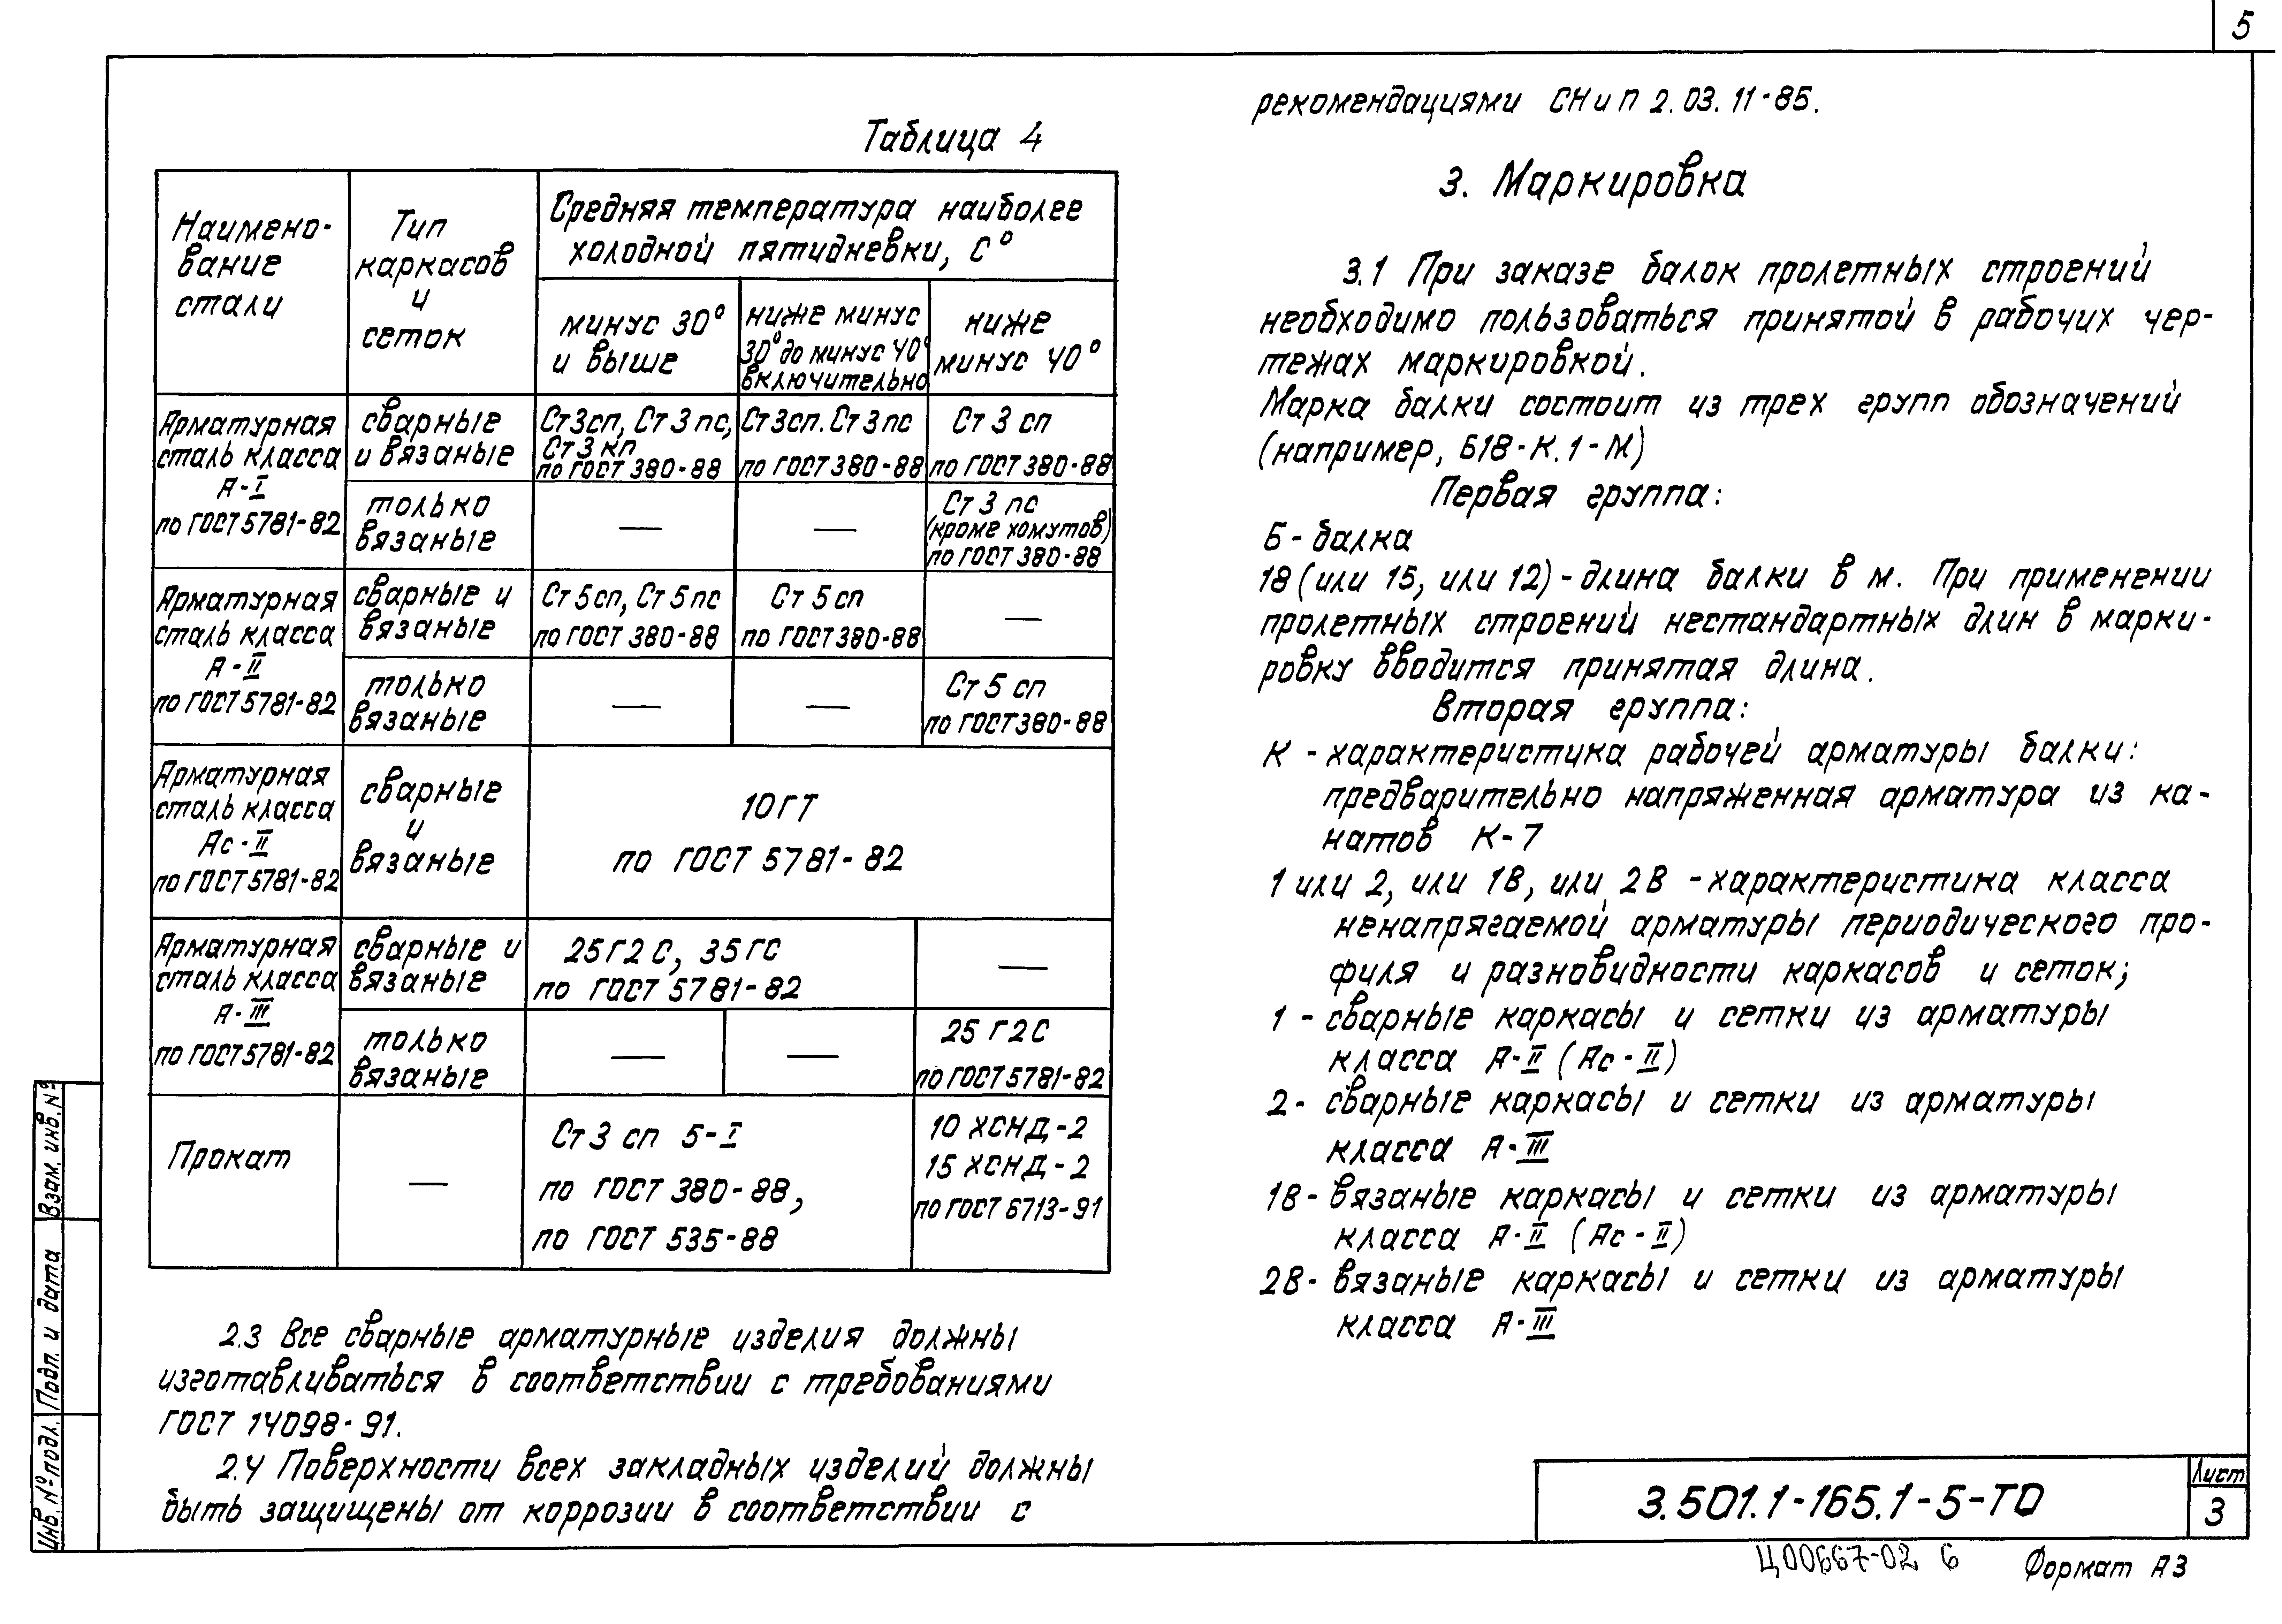 5
Таблица 4
Наимено-
вание
стали
Тип
каркасов
и
сеток
Средняя температура наиболее
холодной пятидневки, С°
минус 30°
и выше
ниже минус
30° до минус 40°
включительно
ниже
минус 40°
Арматурная
сталь класса
А-I
по ГОСТ 5781-82
сварные
и вязаные
Ст3сп, Ст3пс,
Ст3кп
по ГОСТ 380-88
Ст3сп. Ст3пс
по ГОСТ 380-88
Ст 3 сп
по ГОСТ 380-88
только
вязаные
—
—
Ст 3 пс
(кроме хомутов)
по ГОСТ 380-88
Арматурная
сталь класса
А-II
по ГОСТ 5781-82
сварные и
вязаные
Ст5сп, Ст5пс
по ГОСТ 380-88
Ст 5 сп
по ГОСТ 380-88
—
только
вязаные
—
—
Ст 5 сп
по ГОСТ 380-88
Арматурная
сталь класса
Ас-II
по ГОСТ 5781-82
сварные
и
вязаные
10ГТ
по ГОСТ 5781-82
Арматурная
сталь класса
А-III
по ГОСТ 5781-82
сварные и
вязаные
25Г2С, 35ГС
по ГОСТ 5781-82
—
только
вязаные
—
—
25Г2С
по ГОСТ 5781-82
Прокат
—
Ст3 сп 5-I
по ГОСТ 380-88,
по ГОСТ 535-88
10 ХСНД-2
15 ХСНД-2
по ГОСТ 6713-91
2.3 Все сварные арматурные изделия должны
изготавливаться в соответствии с требованиями
ГОСТ 14098-91.
2.4 Поверхности всех закладных изделий должны
быть защищены от коррозии в соответствии с
рекомендациями СНиП 2.03.11-85.
3. Маркировка
3.1 При заказе балок пролетных строений
необходимо пользоваться принятой в рабочих чер-
тежах маркировкой.
Марка балки состоит из трех групп обозначений
(например, Б18-К.1-М)
Первая группа:
Б - балка
18 (или 15, или 12) - длина балки в м. При применении
пролетных строений нестандартных длин в марки-
ровку вводится принятая длина.
Вторая группа:
К - характеристика рабочей арматуры балки:
предварительно напряженная арматура из ка-
натов К-7
1 или 2, или 1В, или 2В - характеристика класса
ненапрягаемой арматуры периодического про-
филя и разновидности каркасов и сеток;
1 - сварные каркасы и сетки из арматуры
класса А-II (Ас-II)
2 - сварные каркасы и сетки из арматуры
класса А-III
1В - вязаные каркасы и сетки из арматуры
класса А-II (Ас-II)
2В - вязаные каркасы и сетки из арматуры
класса А-III
Взам. инв. №
Подп. и дата
Инв. № подл.
3.501.1-165.1-5-ТО
Лист
3
Ц00667-02 6
Формат А3